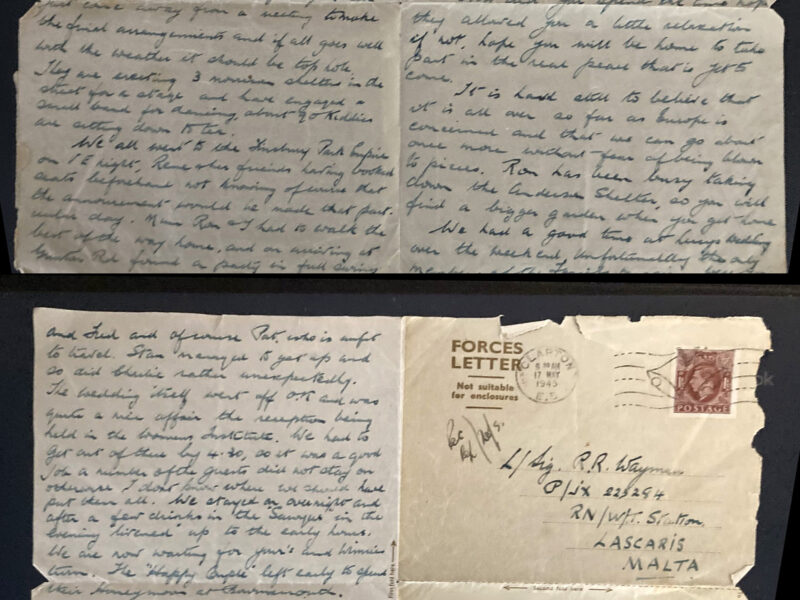 just come away from a meeting to make
the final arrangements and if all goes well
with the weather it should be top hole.
They are erecting 3 morrison shelters in the
street for a stage and have engaged a
small band for dancing, about 90 kiddies
are sitting down to tea.
We all went to the Finsbury Park Empire
on V E night, Rene & her friends having booked
seats beforehand not knowing of course that
the announcement would be made that part-
icular day. Mum Ron & I had to walk the
best of the way home, and on arriving at
Rd found a party in full swing
they allowed you a little relaxation
if not, hope you will be home to take
part in the real peace that is yet to
come.
It is hard still to believe that
it is all over so far as Europe is
concerned and that we can go about
once more without fear of being blown
to pieces. Ron has been busy taking
down the Anderson Shelter, so you will
find a bigger garden when you get home
We had a good time at wedding
over the weekend, unfortunately the only
and Fred and of course Pat, who is unfit
to travel. Stan managed to get up and
so did Charlie rather unexpectedly.
The wedding itself went off O.K and was
quite a nice affair the reception being
held in the Womens Institute. We had to
get out of there by 4.30, so it was a good
job a number of the guests did not stay on
otherwise I dont know where we should have
put them all. We stayed on overnight and
after a few drinks in the "Sawyers" in the
evening "livened" up to the early hours.
We are now waiting for your's and Winnies
turn. The "Happy Couple" left early to spend
their Honeymoon at Bournemouth.
FORCES
LETTER
Not suitable
for enclosures
CLAPTON
17 MAY
1945
E.5
POSTAGE
L/Sig. R.R. Wayman
P/JX 225294
RN/W/T. Station.
LASCARIS
MALTA
Second fold here